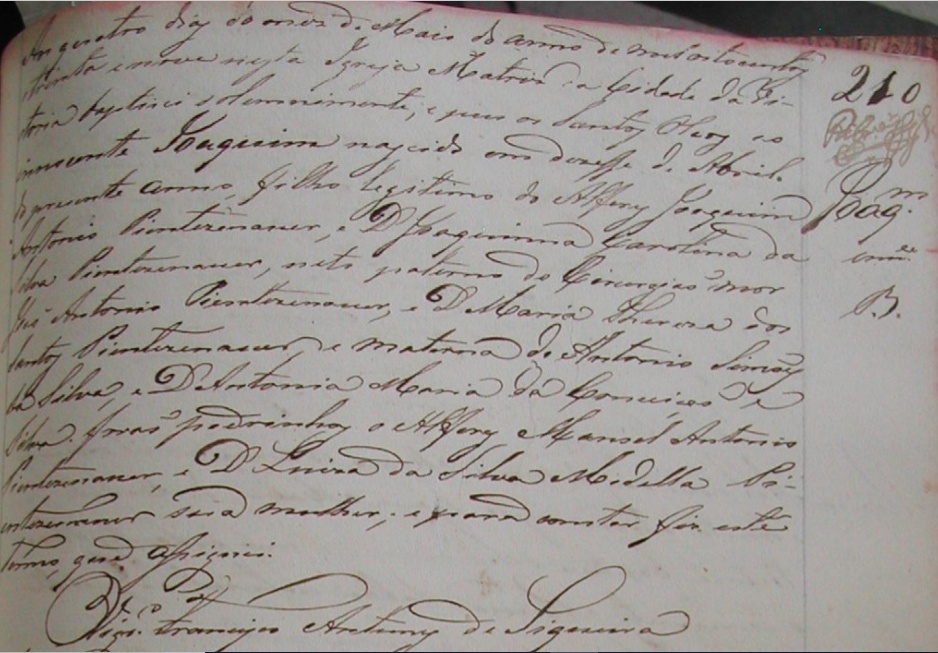 Aos quatro dias do mez de Maio do anno de mil oitocentos
trinta e nove nesta Igreja Matriz da Cidade da Vi-
ctoria baptisei solemnimente, e puz os santos Oleos ao
innocente Joaquim nascido em doze de Abril
do presente anno, filho legitimo do Alferes Joaquim
Antonio Pientzenauer, e D. Joaquinna Carolina da
Silva Pientzenauer, neto paterno do Cirurgião mor
José Antonio Pientzenauer, e D. Maria Thereza dos
Santos Pientzenauer e materno de Antonio Simoes
da Silva, e D. Antonia Maria da Conceição e
Silva. Forão padrinhos o Alferes Manoel Antonio
Pientzenauer, e D. Luiza da Silva Medella Pi-
entzenauer sua mulher; e para constar fiz este
termo, que assignei.
Vigr.º Francisco Antunes de Siqueira
210
Joaq.m
inn.e
B.